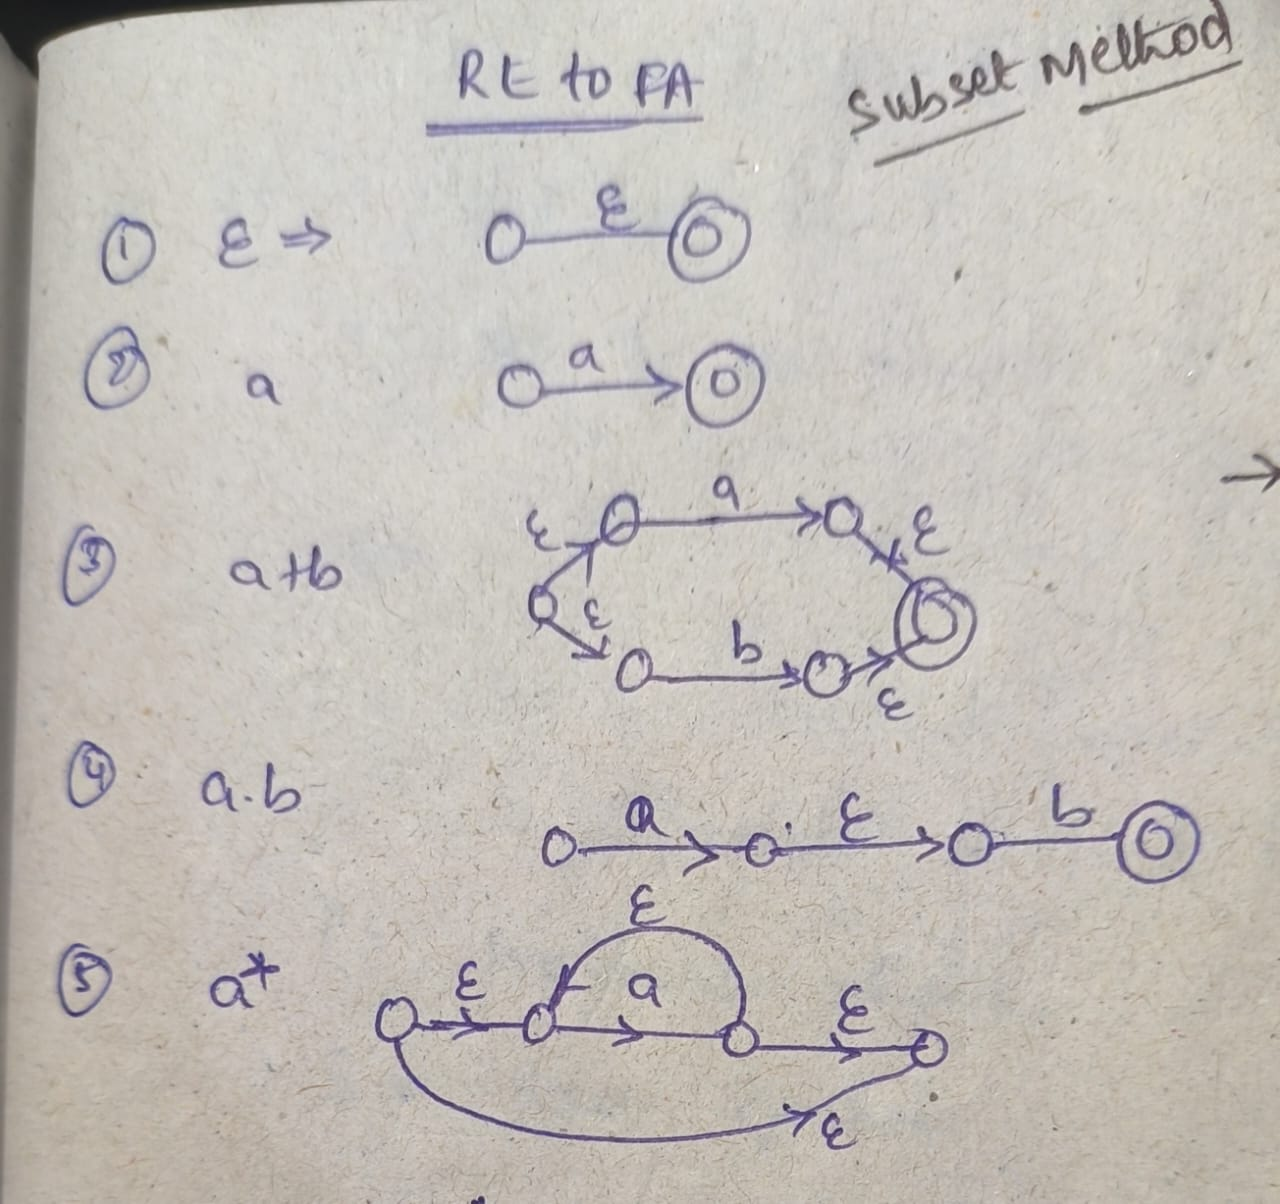 RE to FA
Subset Method
① ε ⇒ ε
② a a
③ a+b ε a ε
ε b ε
④ a.b a ε b
⑤ a* ε ε a ε
ε